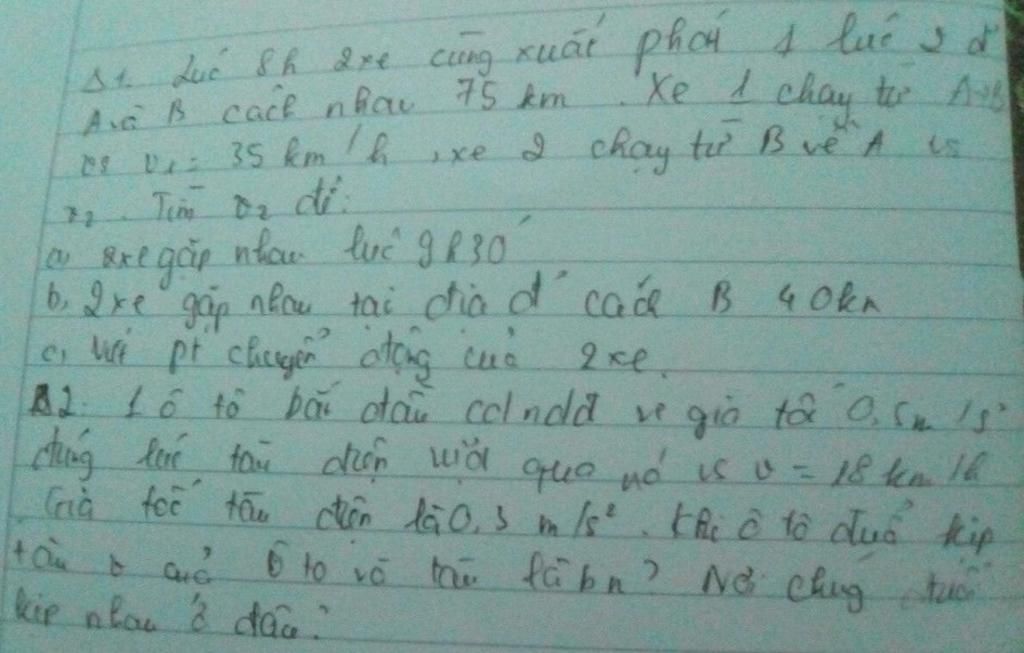 Δ1. Lúc 8h 2xe cùng xuất phát 1 lúc 2 đ
A và B cách nhau 75 km. Xe 1 chạy từ A→B
vs v₁ = 35 km/h, xe 2 chạy từ B về A vs
v₂. Tìm v₂ để:
a) 2xe gặp nhau lúc 9h30'
b, 2xe gặp nhau tại địa đ' cách B 40km
c, Viết pt chuyển động của 2xe.
B2: 1 ô tô bắt đầu cđndđ vs gia tốc 0,5m/s²
đúng lúc tàu điện vượt qua nó vs v = 18 km/h
Gia tốc tàu điện là 0,3 m/s². Khi ô tô đuổi kịp
tàu v của ô to và tàu là bn? Nơi chúng đuổi
kịp nhau ở đâu?